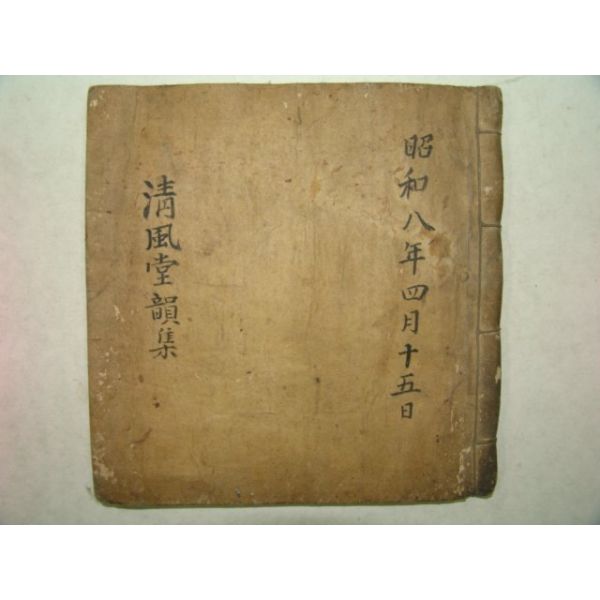 昭和八年四月十五日
清風堂韻集